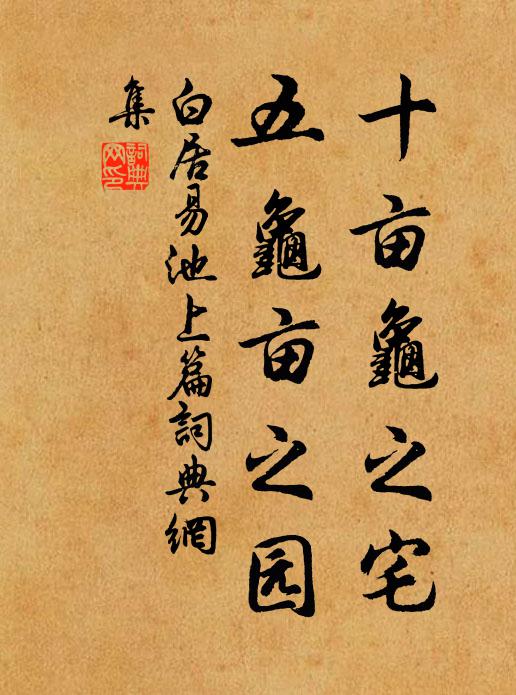 十亩龜之宅
五龜亩之园
白居易池上篇詞典網
集
詞典
网印